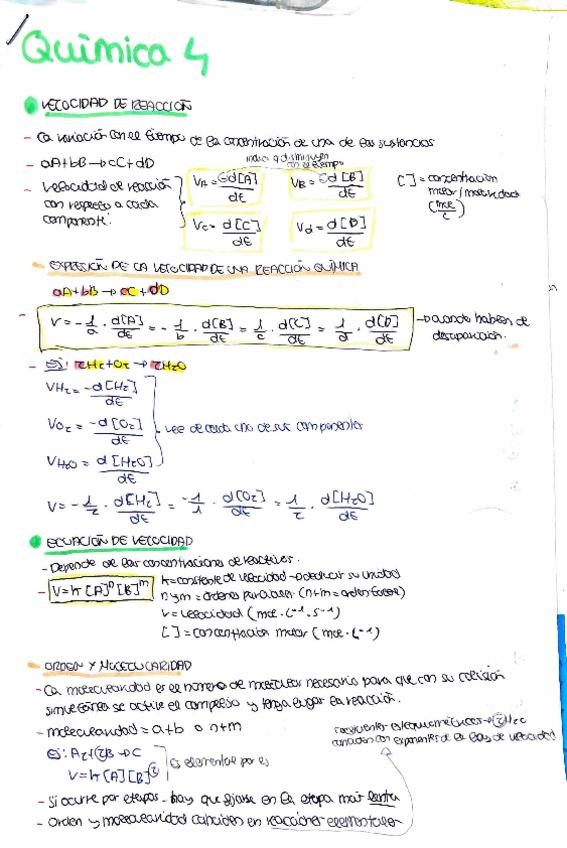 Química 4
VELOCIDAD DE REACCIÓN
- La variación con el tiempo de la concentración de una de las sustancias
- aA+bB→cC+dD
indica q disminuyen con el tiempo
- velocidad de reacción
con respecto a cada
componente:
V_A = -d[A]/dt V_B = -d[B]/dt
V_C = d[C]/dt V_d = d[D]/dt
[ ] = concentración
molar/molaridad
(mol/L)
- EXPRESIÓN DE LA VELOCIDAD DE UNA REACCIÓN QUÍMICA
aA+bB→cC+dD
- V = -1/a · d[A]/dt = -1/b · d[B]/dt = 1/c · d[C]/dt = 1/d · d[D]/dt → cuando hablen de
desaparición.
- Ej: 2H2+O2→2H2O
VH2 = -d[H2]/dt
VO2 = -d[O2]/dt
VH2O = d[H2O]/dt
vel de cada uno de sus componentes
V = -1/2 · d[H2]/dt = -1/1 · d[O2]/dt = 1/2 · d[H2O]/dt
ECUACIÓN DE VELOCIDAD
- Depende de las concentraciones de reactivos.
- V=k[A]^n[B]^m
k=constante de velocidad → su unidad
n y m = órdenes parciales (n+m = orden total)
v = velocidad (mol·L^-1·s^-1)
[ ] = concentración molar (mol·L^-1)
- ORDEN Y MOLECULARIDAD
- La molecularidad es el número de moléculas necesario para que con su colisión
simultánea se active el complejo y tenga lugar la reacción.
- molecularidad = a+b o n+m
coeficientes estequiométricos
coinciden con exponentes de la ley de velocidad
Ej: A2+2B→C
V=k[A][B]^2
Es elemental por es
- Si ocurre por etapas - hay que fijarse en la etapa más lenta
- Orden y molecularidad coinciden en reacciones elementales